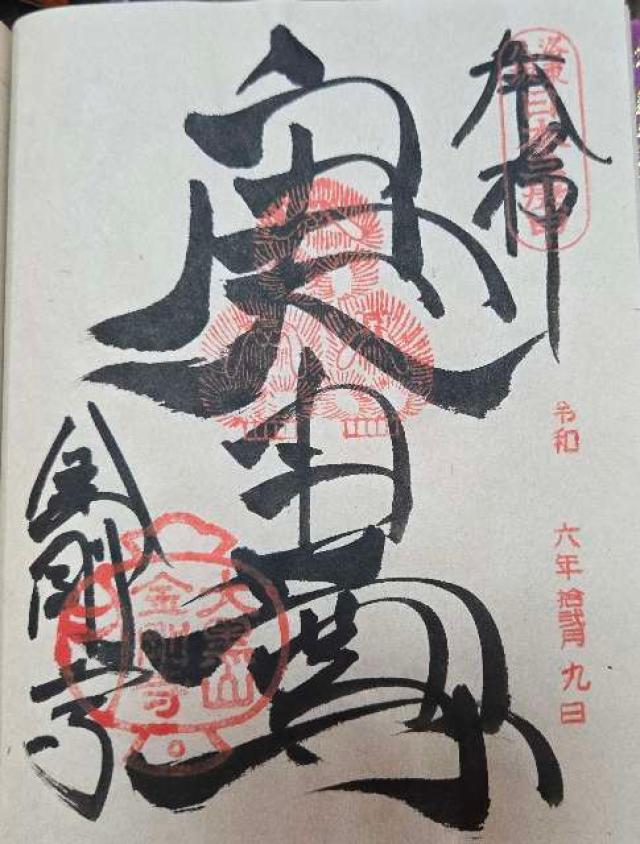 奉拝
令和 六年 拾弐月 九日
庚申尊
金剛寺
大黒山
金剛寺